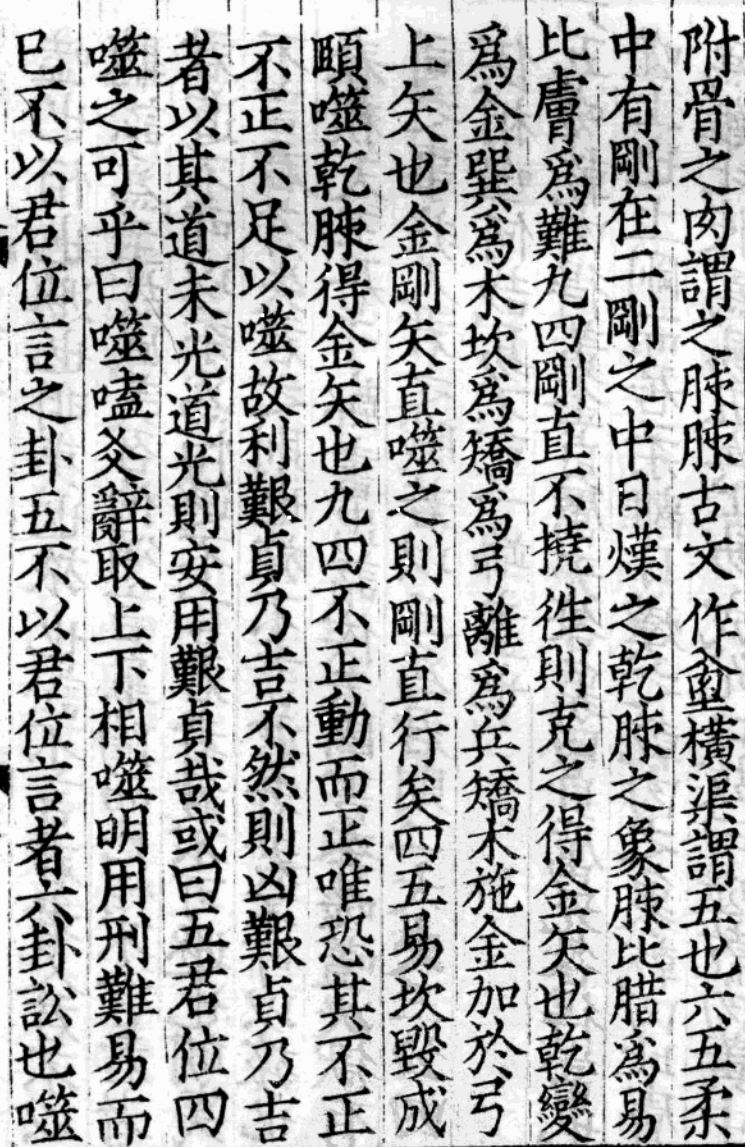 附骨之肉謂之胏胏古文作㙁橫渠謂五也六五柔
中有剛在二剛之中日熯之乾胏之象胏比腊爲易
比膚爲難九四剛直不撓徃則克之得金矢也乾變
爲金巽爲木坎爲矯爲弓離爲兵矯木施金加於弓
上矢也金剛矢直噬之則剛直行矣四五易坎毀成
頤噬乾胏得金矢也九四不正動而正唯恐其不正
不正不足以噬故利艱貞乃吉不然則凶艱貞乃吉
者以其道未光道光則安用艱貞哉或曰五君位四
噬之可乎曰噬嗑爻辭取上下相噬明用刑難易而
已不以君位言之卦五不以君位言者六卦訟也噬